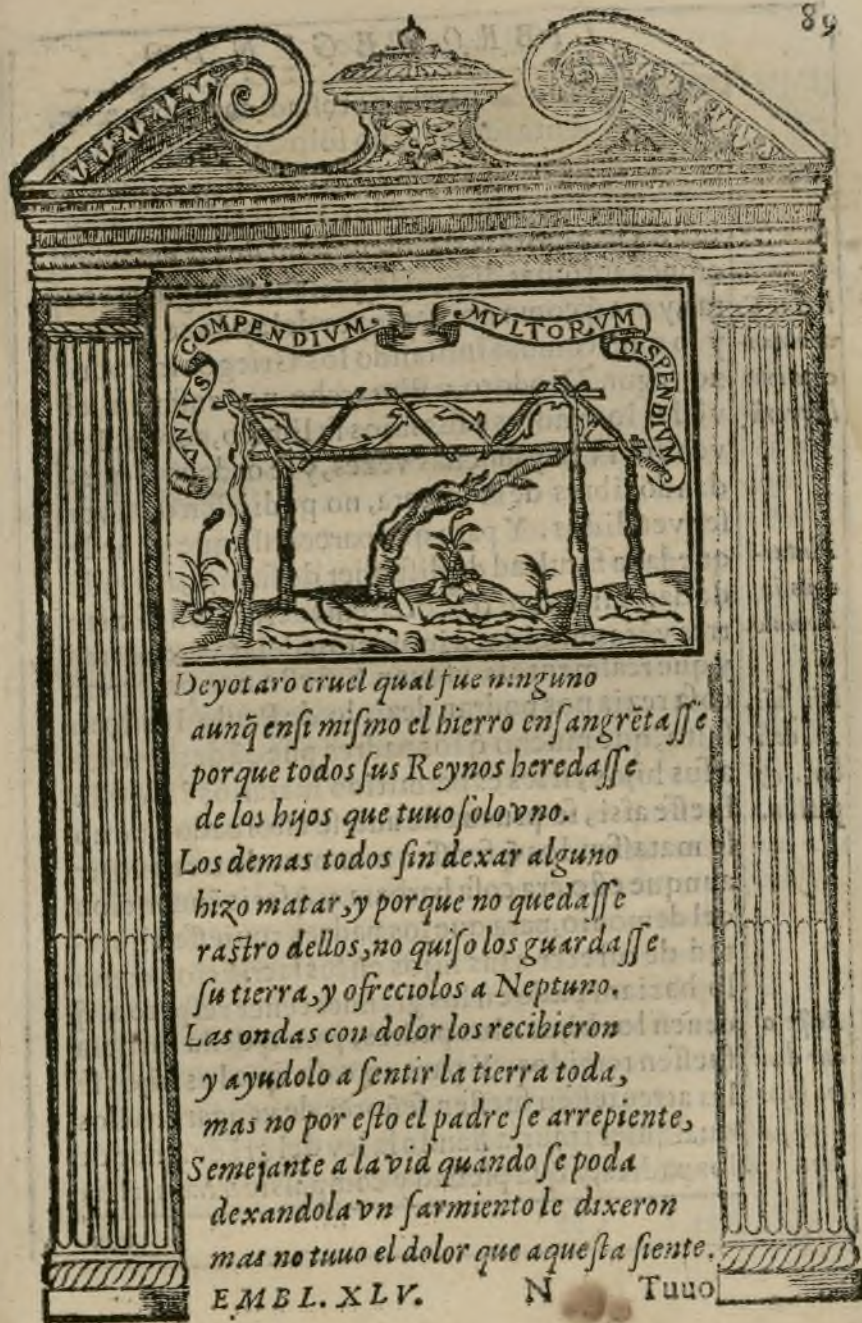 89
VNIVS COMPENDIVM. MVLTORVM DISPENDIVM
Deyotaro cruel qual fue ninguno
aunq̃ ensi mismo el hierro ensangrẽtasse
porque todos sus Reynos heredasse
de los hijos que tuuo solo vno.
Los demas todos sin dexar alguno
hizo matar, y porque no quedasse
rastro dellos, no quiso los guardasse
su tierra, y ofreciolos a Neptuno.
Las ondas con dolor los recibieron
y ayudolo a sentir la tierra toda,
mas no por esto el padre se arrepiente,
Semejante a la vid quando se poda
dexandola vn sarmiento le dixeron
mas no tuuo el dolor que aquesta siente.
EMBL. XLV. N Tuuo